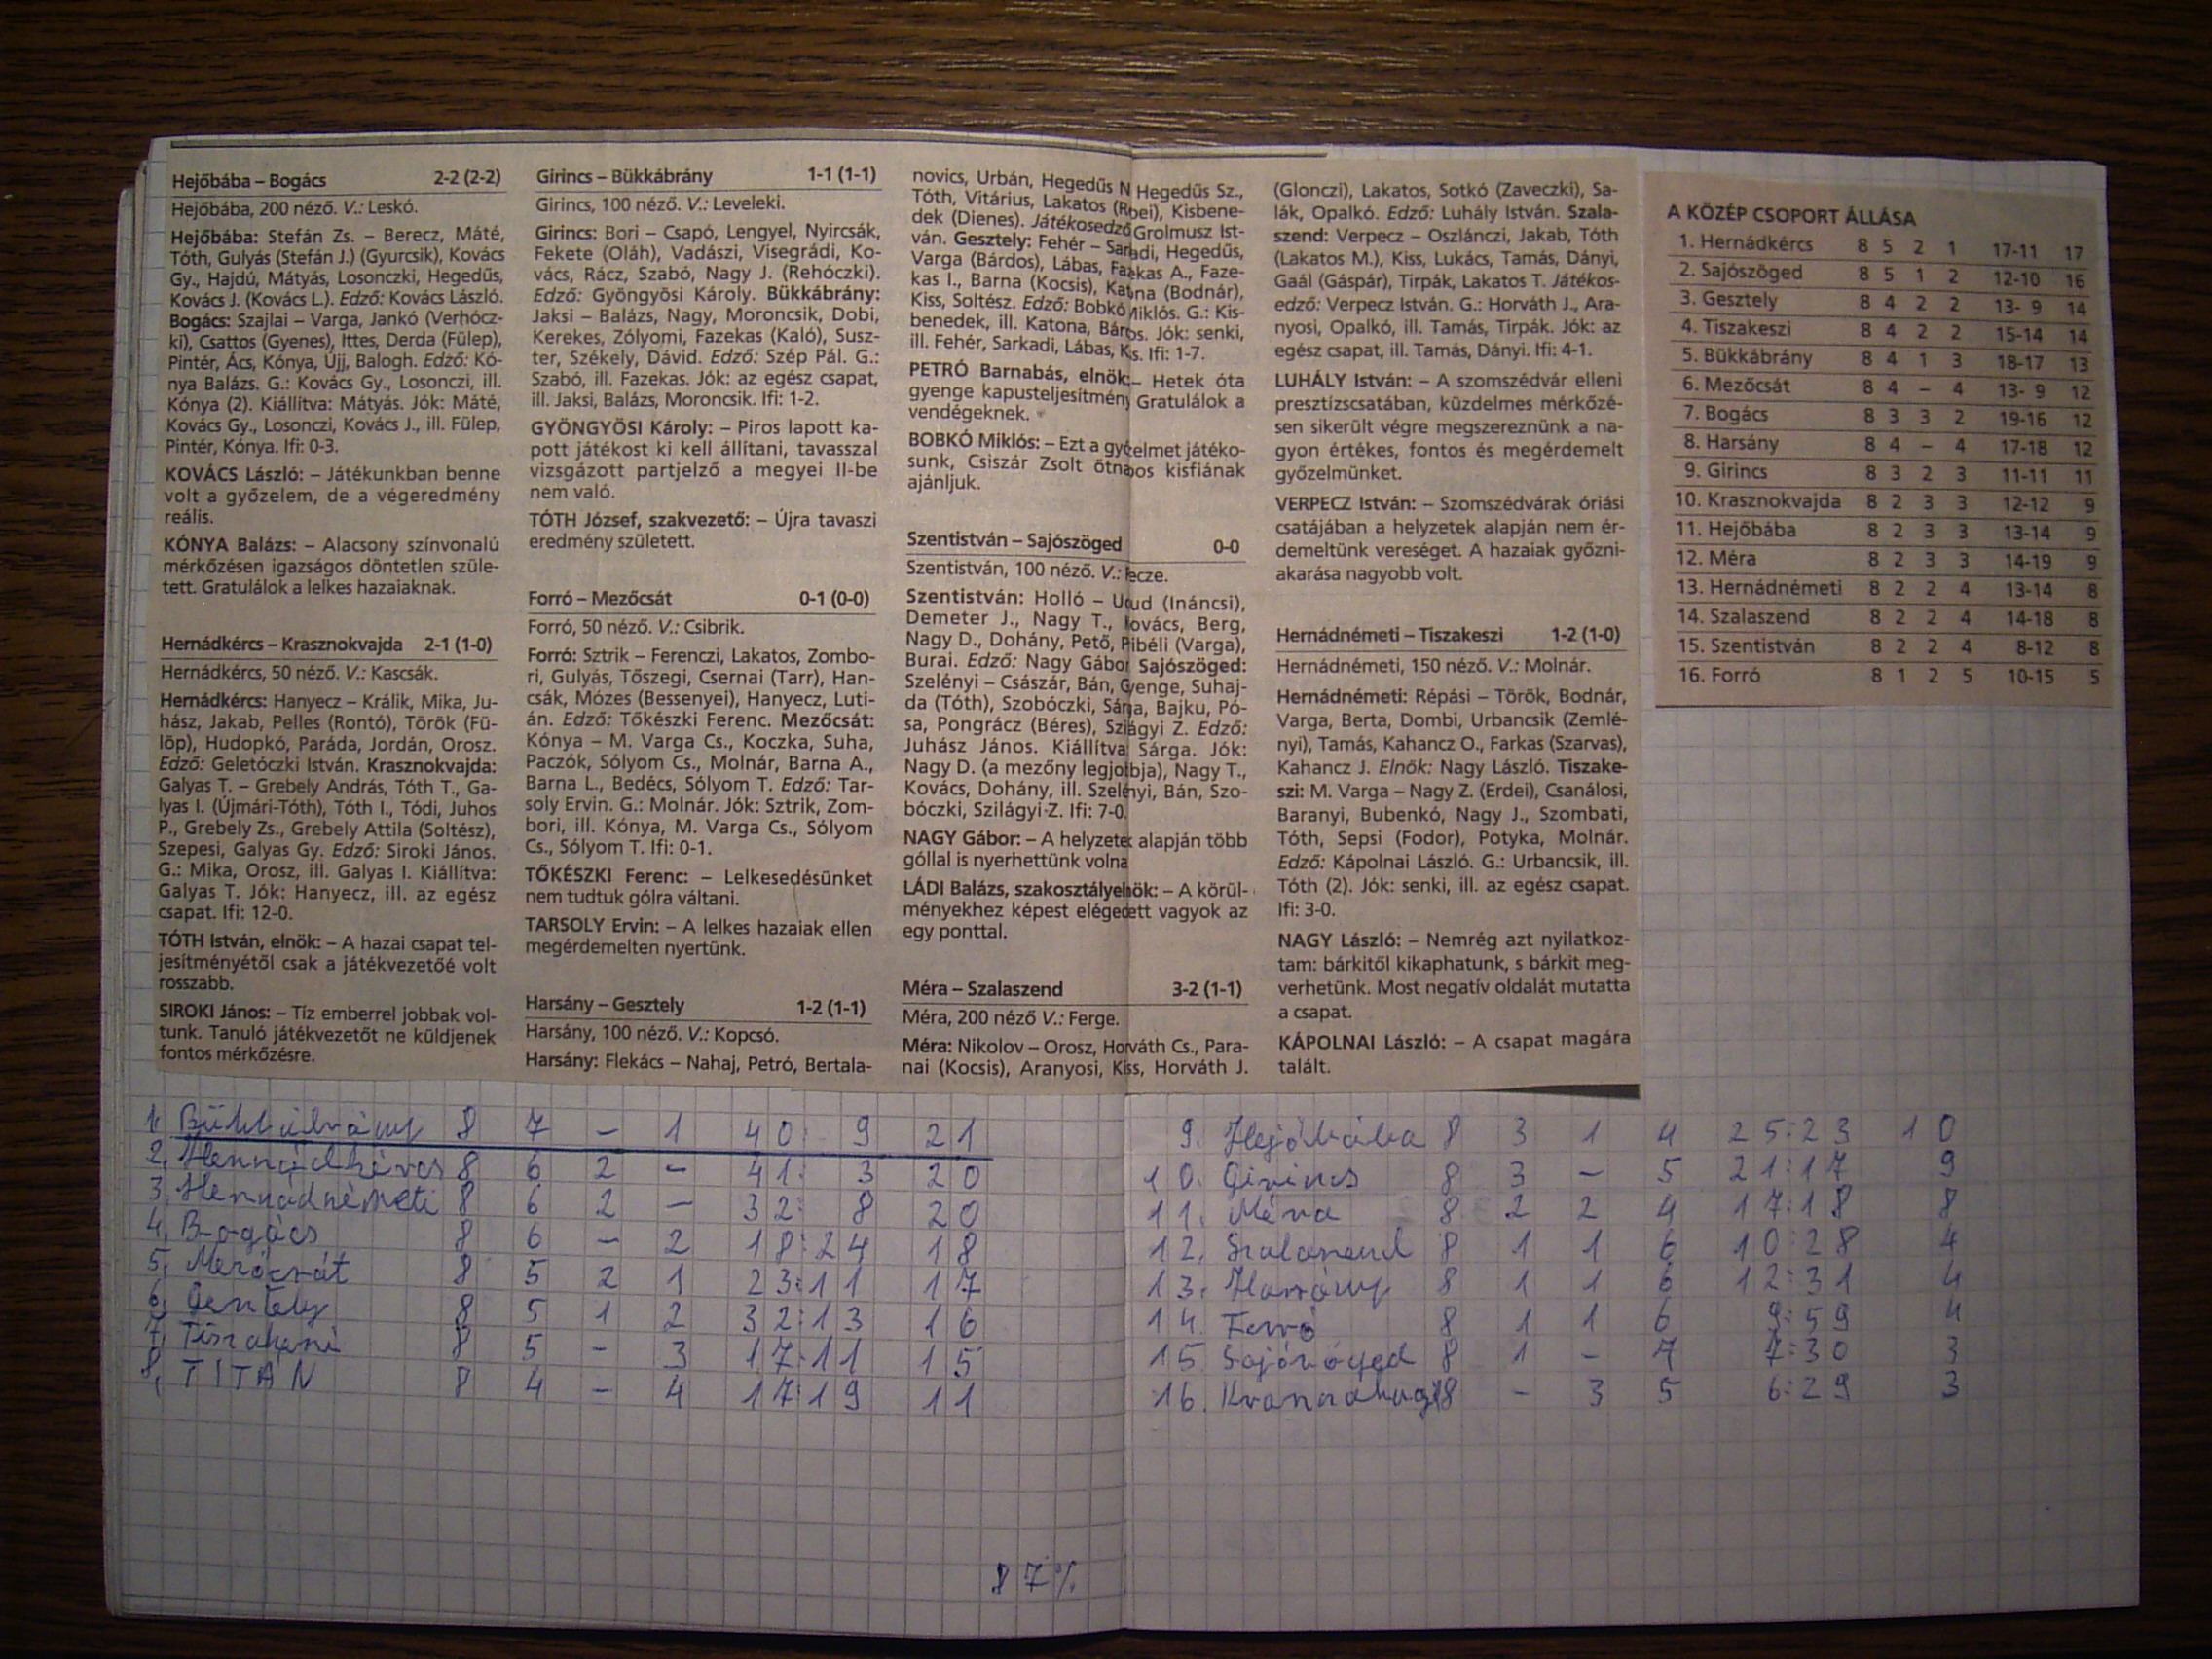 Hejőbába – Bogács 2-2 (2-2)
Hejőbába, 200 néző. V.: Leskó.
Hejőbába: Stefán Zs. – Berecz, Máté,
Tóth, Gulyás (Stefán J.) (Gyurcsik), Kovács
Gy., Hajdú, Mátyás, Losonczki, Hegedűs,
Kovács J. (Kovács L.). Edző: Kovács László.
Bogács: Szajlai – Varga, Jankó (Verhócz-
ki), Csattos (Gyenes), Ittes, Derda (Fülep),
Pintér, Ács, Kónya, Újj, Balogh. Edző: Kó-
nya Balázs. G.: Kovács Gy., Losonczi, ill.
Kónya (2). Kiállítva: Mátyás. Jók: Máté,
Kovács Gy., Losonczi, Kovács J., ill. Fülep,
Pintér, Kónya. Ifi: 0-3.
KOVÁCS László: – Játékunkban benne
volt a győzelem, de a végeredmény
reális.
KÓNYA Balázs: – Alacsony színvonalú
mérkőzésen igazságos döntetlen szüle-
tett. Gratulálok a lelkes hazaiaknak.
Hernádkércs – Krasznokvajda 2-1 (1-0)
Hernádkércs, 50 néző. V.: Kascsák.
Hernádkércs: Hanyecz – Králik, Mika, Ju-
hász, Jakab, Pelles (Rontó), Török (Fü-
löp), Hudopkó, Paráda, Jordán, Orosz.
Edző: Geletóczki István. Krasznokvajda:
Galyas T. – Grebely András, Tóth T., Ga-
lyas I. (Újmári-Tóth), Tóth I., Tódi, Juhos
P., Grebely Zs., Grebely Attila (Soltész),
Szepesi, Galyas Gy. Edző: Siroki János.
G.: Mika, Orosz, ill. Galyas I. Kiállítva:
Galyas T. Jók: Hanyecz, ill. az egész
csapat. Ifi: 12-0.
TÓTH István, elnök: – A hazai csapat tel-
jesítményétől csak a játékvezetőé volt
rosszabb.
SIROKI János: – Tíz emberrel jobbak vol-
tunk. Tanuló játékvezetőt ne küldjenek
fontos mérkőzésre.
Girincs – Bükkábrány 1-1 (1-1)
Girincs, 100 néző. V.: Leveleki.
Girincs: Bori – Csapó, Lengyel, Nyircsák,
Fekete (Oláh), Vadászi, Visegrádi, Ko-
vács, Rácz, Szabó, Nagy J. (Rehóczki).
Edző: Gyöngyösi Károly. Bükkábrány:
Jaksi – Balázs, Nagy, Moroncsik, Dobi,
Kerekes, Zólyomi, Fazekas (Kaló), Susz-
ter, Székely, Dávid. Edző: Szép Pál. G.:
Szabó, ill. Fazekas. Jók: az egész csapat,
ill. Jaksi, Balázs, Moroncsik. Ifi: 1-2.
GYÖNGYÖSI Károly: – Piros lapott ka-
pott játékost ki kell állítani, tavasszal
vizsgázott partjelző a megyei II-be
nem való.
TÓTH József, szakvezető: – Újra tavaszi
eredmény született.
Forró – Mezőcsát 0-1 (0-0)
Forró, 50 néző. V.: Csibrik.
Forró: Sztrik – Ferenczi, Lakatos, Zombo-
ri, Gulyás, Tőszegi, Csernai (Tarr), Han-
csák, Mózes (Bessenyei), Hanyecz, Luti-
án. Edző: Tőkészki Ferenc. Mezőcsát:
Kónya – M. Varga Cs., Koczka, Suha,
Paczók, Sólyom Cs., Molnár, Barna A.,
Barna L., Bedécs, Sólyom T. Edző: Tar-
soly Ervin. G.: Molnár. Jók: Sztrik, Zom-
bori, ill. Kónya, M. Varga Cs., Sólyom
Cs., Sólyom T. Ifi: 0-1.
TŐKÉSZKI Ferenc: – Lelkesedésünket
nem tudtuk gólra váltani.
TARSOLY Ervin: – A lelkes hazaiak ellen
megérdemelten nyertünk.
Harsány – Gesztely 1-2 (1-1)
Harsány, 100 néző. V.: Kopcsó.
Harsány: Flekács – Nahaj, Petró, Bertala-
novics, Urbán, Hegedűs N Hegedűs Sz.,
Tóth, Vitárius, Lakatos (Rbei), Kisbene-
dek (Dienes). Játékosedző Grolmusz Ist-
ván. Gesztely: Fehér – Sarkadi, Hegedűs,
Varga (Bárdos), Lábas, Fazekas A., Faze-
kas I., Barna (Kocsis), Katona (Bodnár),
Kiss, Soltész. Edző: Bobkó Miklós. G.: Kis-
benedek, ill. Katona, Bárdos. Jók: senki,
ill. Fehér, Sarkadi, Lábas, Ks. Ifi: 1-7.
PETRÓ Barnabás, elnök: – Hetek óta
gyenge kapusteljesítmény Gratulálok a
vendégeknek.
BOBKÓ Miklós: – Ezt a győzelmet játéko-
sunk, Csiszár Zsolt ötnapos kisfiának
ajánljuk.
Szentistván – Sajószöged 0-0
Szentistván, 100 néző. V.: ecze.
Szentistván: Holló – (Ináncsi),
Demeter J., Nagy T., Kovács, Berg,
Nagy D., Dohány, Pető, Pibéli (Varga),
Burai. Edző: Nagy Gábor Sajószöged:
Szelényi – Császár, Bán, Gyenge, Suhaj-
da (Tóth), Szobóczki, Sárga, Bajku, Pó-
sa, Pongrácz (Béres), Szilágyi Z. Edző:
Juhász János. Kiállítva: Sárga. Jók:
Nagy D. (a mezőny legjobbja), Nagy T.,
Kovács, Dohány, ill. Szelényi, Bán, Szo-
bóczki, Szilágyi Z. Ifi: 7-0.
NAGY Gábor: – A helyzetek alapján több
góllal is nyerhettünk volna
LÁDI Balázs, szakosztályelnök: – A körül-
ményekhez képest elégedett vagyok az
egy ponttal.
Méra – Szalaszend 3-2 (1-1)
Méra, 200 néző V.: Ferge.
Méra: Nikolov – Orosz, Horváth Cs., Para-
nai (Kocsis), Aranyosi, Kiss, Horváth J.
(Glonczi), Lakatos, Sotkó (Zaveczki), Sa-
lák, Opalkó. Edző: Luhály István. Szala-
szend: Verpecz – Oszlánczi, Jakab, Tóth
(Lakatos M.), Kiss, Lukács, Tamás, Dányi,
Gaál (Gáspár), Tirpák, Lakatos T. Játékos-
edző: Verpecz István. G.: Horváth J., Ara-
nyosi, Opalkó, ill. Tamás, Tirpák. Jók: az
egész csapat, ill. Tamás, Dányi. Ifi: 4-1.
LUHÁLY István: – A szomszédvár elleni
presztízscsatában, küzdelmes mérkőzé-
sen sikerült végre megszereznünk a na-
gyon értékes, fontos és megérdemelt
győzelmünket.
VERPECZ István: – Szomszédvárak óriási
csatájában a helyzetek alapján nem ér-
demeltünk vereséget. A hazaiak győzni-
akarása nagyobb volt.
Hernádnémeti – Tiszakeszi 1-2 (1-0)
Hernádnémeti, 150 néző. V.: Molnár.
Hernádnémeti: Répási – Török, Bodnár,
Varga, Berta, Dombi, Urbancsik (Zemlé-
nyi), Tamás, Kahancz O., Farkas (Szarvas),
Kahancz J. Elnök: Nagy László. Tiszake-
szi: M. Varga – Nagy Z. (Erdei), Csanálosi,
Baranyi, Bubenkó, Nagy J., Szombati,
Tóth, Sepsi (Fodor), Potyka, Molnár.
Edző: Kápolnai László. G.: Urbancsik, ill.
Tóth (2). Jók: senki, ill. az egész csapat.
Ifi: 3-0.
NAGY László: – Nemrég azt nyilatkoz-
tam: bárkitől kikaphatunk, s bárkit meg-
verhetünk. Most negatív oldalát mutatta
a csapat.
KÁPOLNAI László: – A csapat magára
talált.
A KÖZÉP CSOPORT ÁLLÁSA
1. Hernádkércs 8 5 2 1 17-11 17
2. Sajószöged 8 5 1 2 12-10 16
3. Gesztely 8 4 2 2 13- 9 14
4. Tiszakeszi 8 4 2 2 15-14 14
5. Bükkábrány 8 4 1 3 18-17 13
6. Mezőcsát 8 4 – 4 13- 9 12
7. Bogács 8 3 3 2 19-16 12
8. Harsány 8 4 – 4 17-18 12
9. Girincs 8 3 2 3 11-11 11
10. Krasznokvajda 8 2 3 3 12-12 9
11. Hejőbába 8 2 3 3 13-14 9
12. Méra 8 2 3 3 14-19 9
13. Hernádnémeti 8 2 2 4 13-14 8
14. Szalaszend 8 2 2 4 14-18 8
15. Szentistván 8 2 2 4 8-12 8
16. Forró 8 1 2 5 10-15 5
1. Bükkábrány 8 7 – 1 40: 9 21
2. Hernádkércs 8 6 2 – 41: 3 20
3. Hernádnémeti 8 6 2 – 32: 8 20
4. Bogács 8 6 – 2 18:24 18
5. Mezőcsát 8 5 2 1 23:11 17
6. Gesztely 8 5 1 2 32:13 16
7. Tiszakeszi 8 5 – 3 17:11 15
8. TITÁN 8 4 – 4 17:19 11
9. Hejőbába 8 3 1 4 25:23 10
10. Girincs 8 3 – 5 21:17 9
11. Méra 8 2 2 4 17:18 8
12. Szalaszend 8 1 1 6 10:28 4
13. Harsány 8 1 1 6 12:31 4
14. Forró 8 1 1 6 9:59 4
15. Sajószöged 8 1 – 7 7:30 3
16. 8 – 3 5 6:29 3
87%